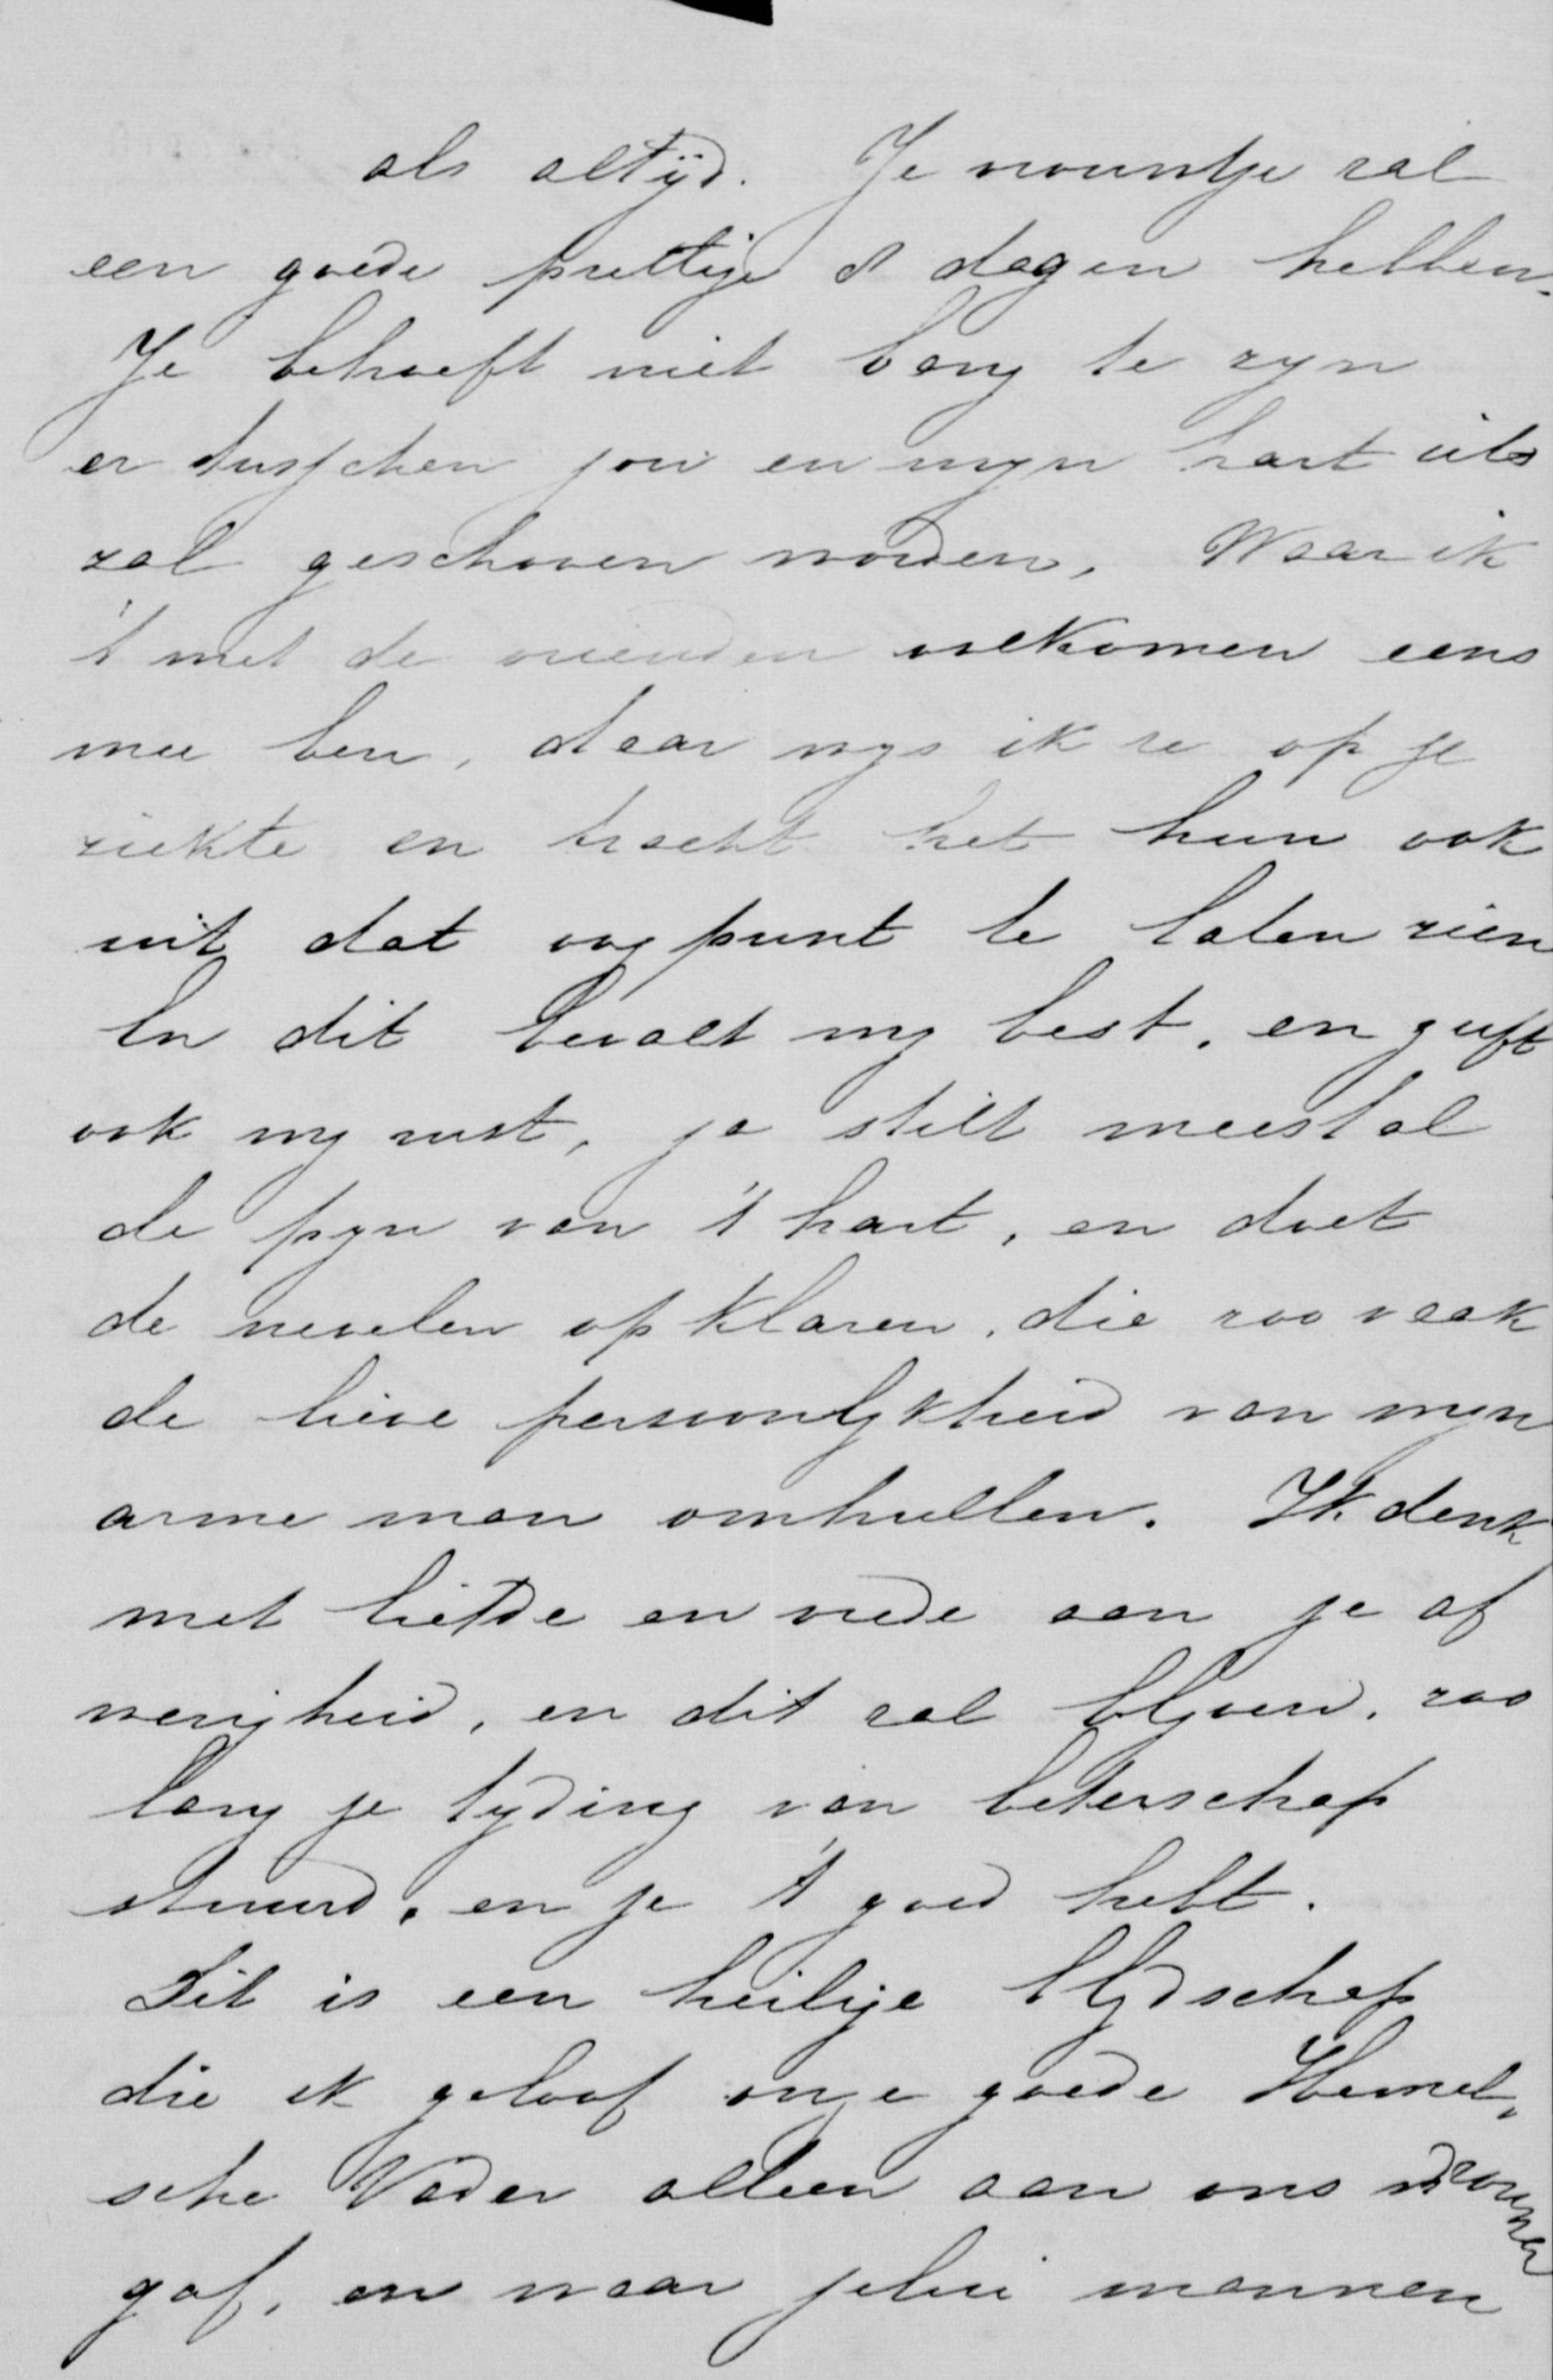 als altijd. Je vrouwtje zal
een goede prettige 8 dagen hebben.
Je behoeft niet bang te zyn
er tusschen jou en myn hart iets
zal geschoven worden. Waar ik
't met de vrienden volkomen eens
mee ben, daar wys ik ze op je
ziekte en tracht het hun ook
uit dat oogpunt te laten zien
En dit bevalt my best, en geeft
ook my rust, ja stilt meestal
de pyn van 't hart, en doet
de nevelen opklaren, die zoo vaak
de lieve persoonlykheid van myn
arme man omhullen. Ik denk
met liefde en vrede aan je af
wezigheid, en dit zal blyven, zoo
lang je tyding van beterschap
stuurd, en je 't goed hebt.
Dit is een heilige blydschap
die ik geloof onze goede Hemel,
sche Vader alleen aan ons vrouwen
gaf, en waar jelui mannen